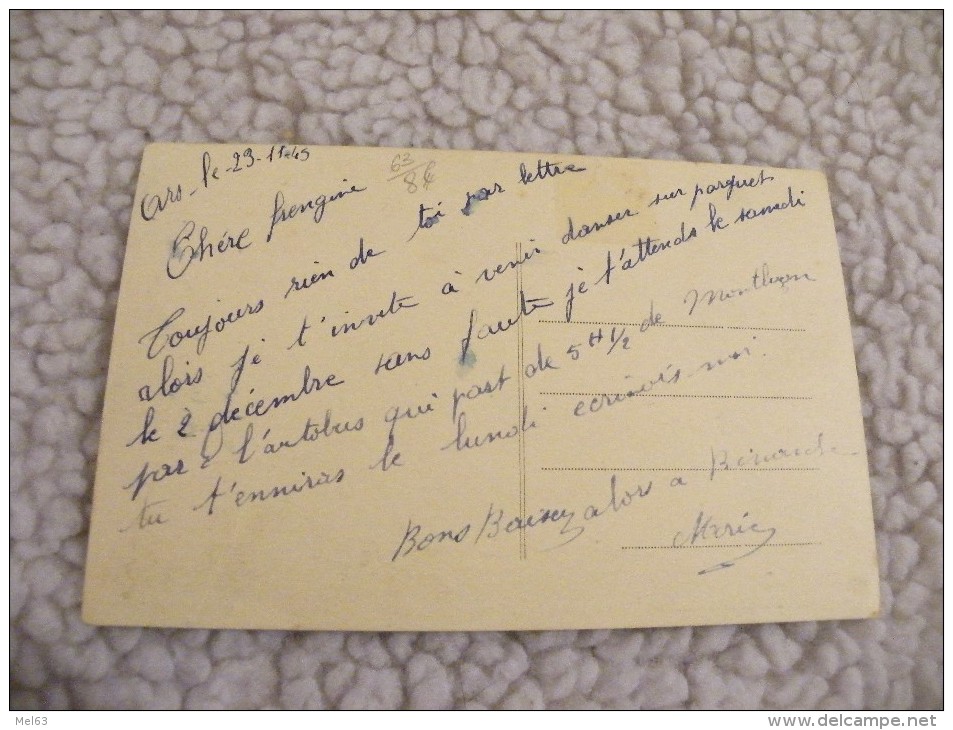 Ars - le - 23-11-45
63
8€
Chére frengine
Toujours rien de toi par lettre
alors je t'invite à venir danser sur parquet
le 2 décembre sans faute je t'attends le samedi
par l'autobus qui part de 5 H 1/2 de Montluçon
tu t'enniras le lundi ecrivois moi.
Bons Baisers alors a Dimanche
Marie
Mel63
www.delcampe.net